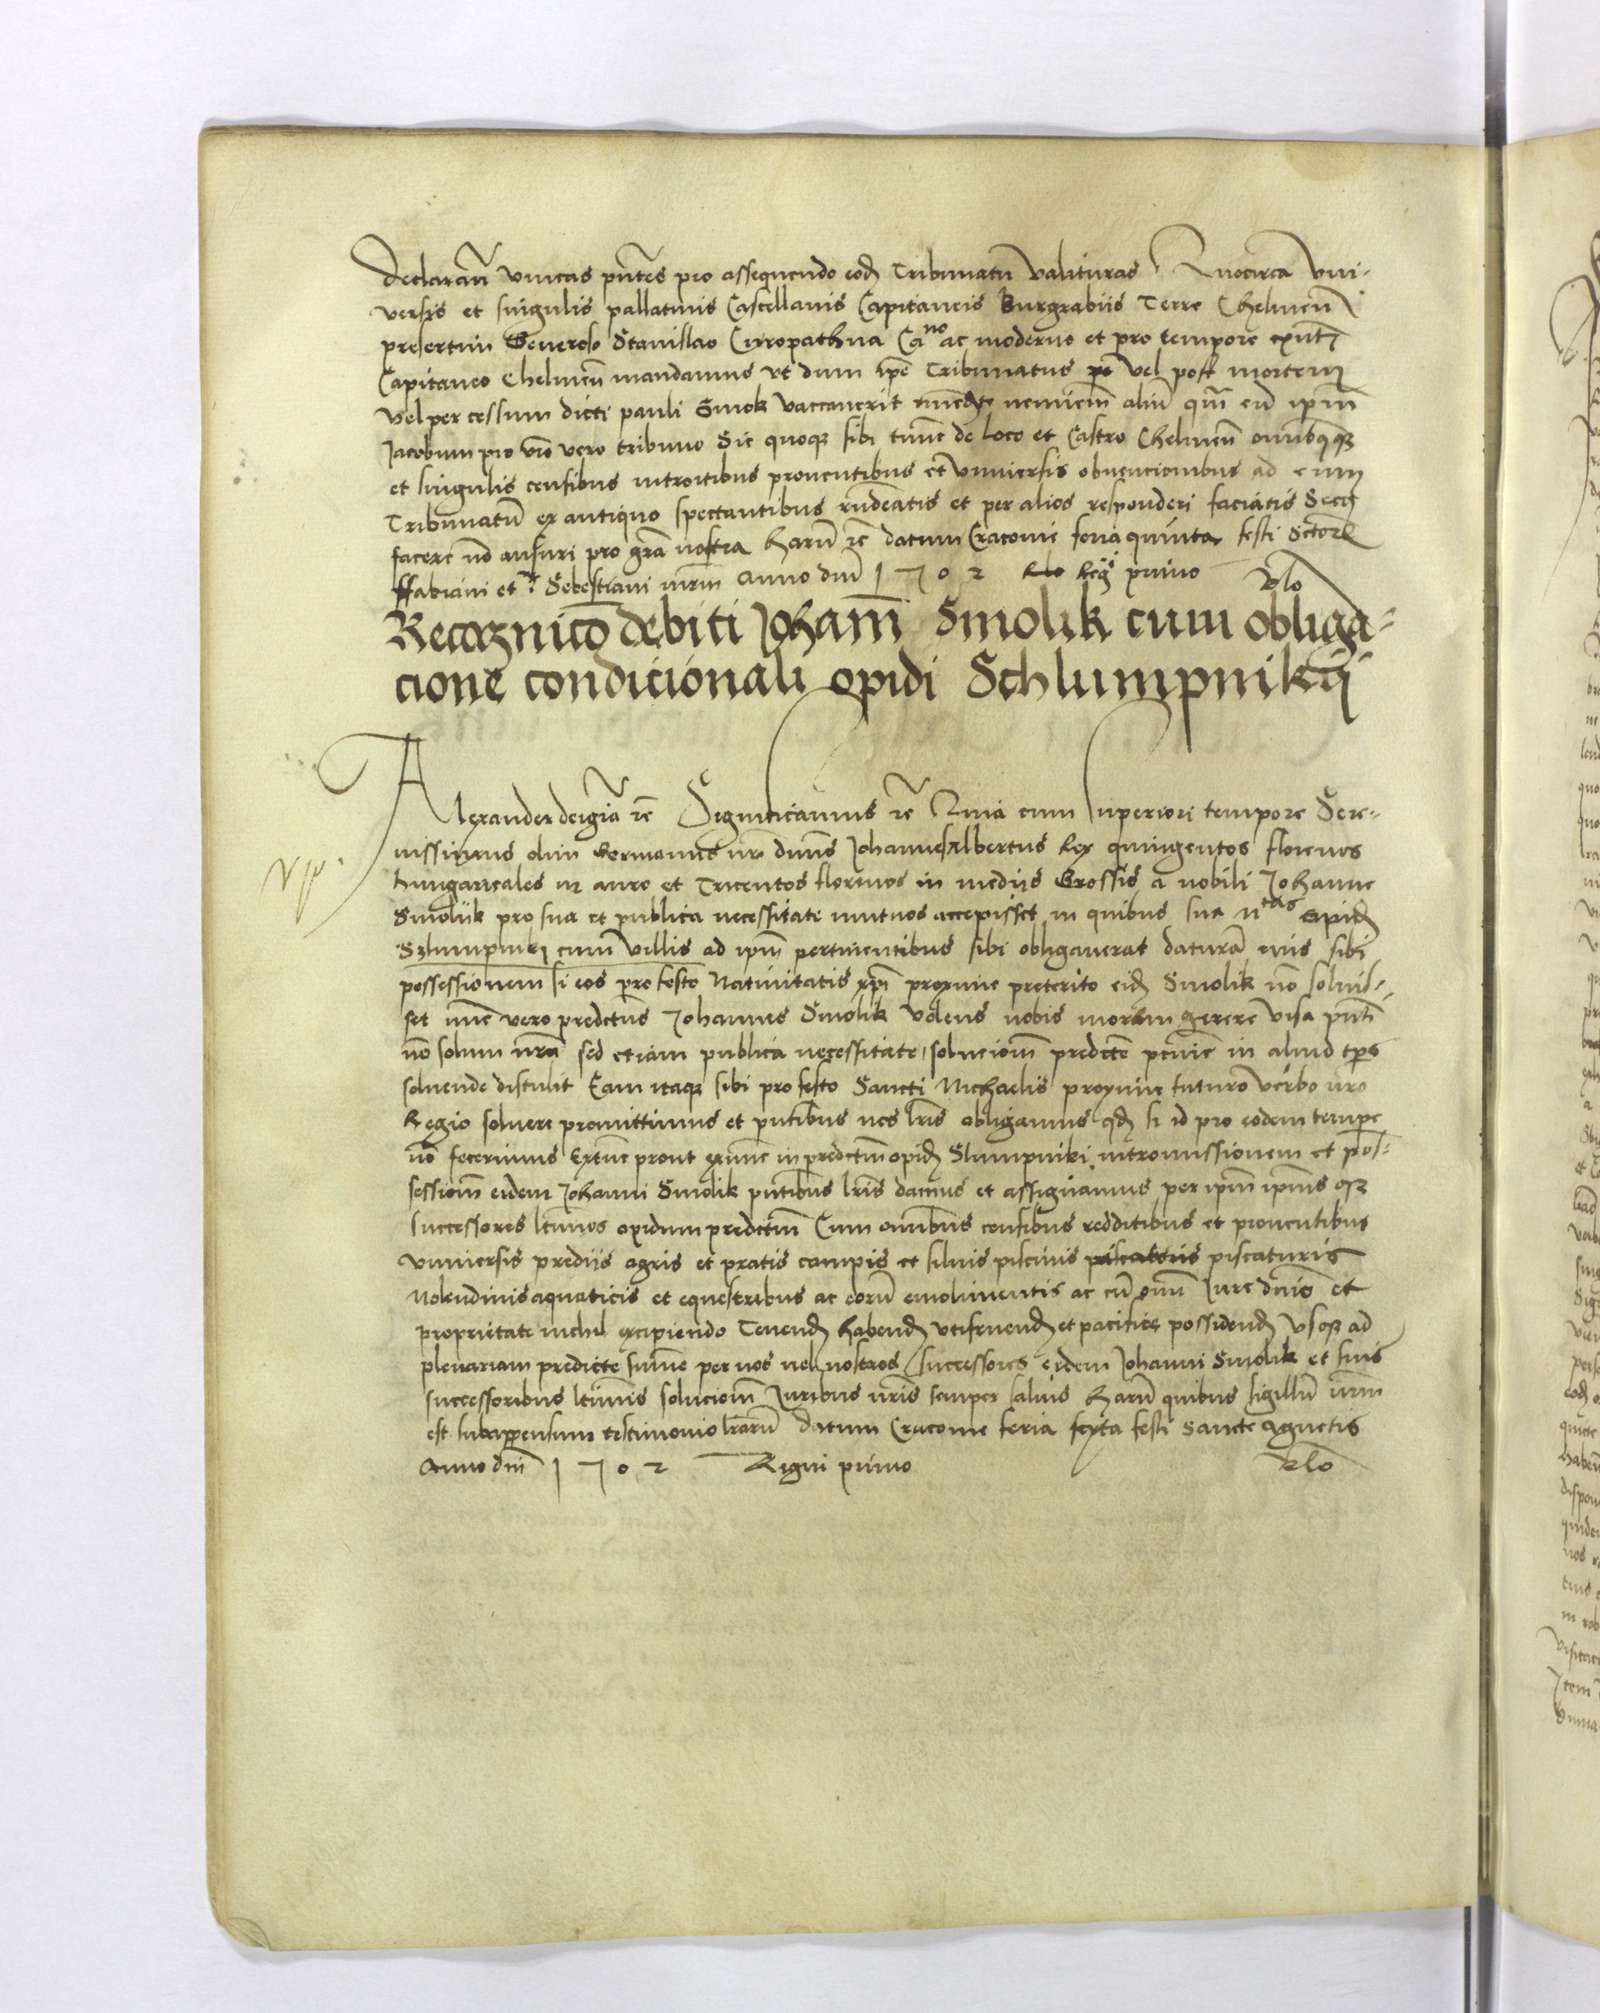 Declaran̄ vnicas pn̄tes pro assequendo eod̄ Tribunatu valituras Quocirca vni-
versis et singulis pallatinis Castellanis Capitaneis Burgrabiis Terre Chelmen̄
presertim Generoso Stanislao Curopathwa Ca^no ac moderno et pro tempore exnt
Capitaneo Chelmen̄ mandamus vt dum ip̄e Tribunatus vel post mortem
vel per cessum dicti pauli Smok vaccauerit nemiem̄ aliū qm̄ eū ip̄m
Jacobum pro vero tribuno Sic quoqz sibi tunc de loco et Castro Chelmen̄
et singulis censibus introitibus prouentibus et vniuersis obuencionibus ad eum
Tribunatū ex antiquo spectantibus rn̄deatis et per alios responderi faciatis Secꝰ
facere nō ausuri pro grā nostra Harū rē datum Cracouie feria quinta festi Sctōrꝫ
ffabiani et Sebestiani mr̄m Anno dn̄i 1502 Reḡ primo Rlō
Recognicō debiti Johan̄ Smolik cum obliga-
cione condicionali opidi Schlumpnikij
Alexander dei grā rē Significamus rē Quia cum superiori tempore Sere-
nissimus olim Germanus nr̄ dn̄us Johannes Albertus Rex quingentos florenos
hungaricales in auro et Tricentos florenos in mediis Grossis a nobili Johanne
Smolik pro sua et publica necessitate mutuos accepisset in quibus sua opid̄
Szlumpniki cum villis ad ip̄m pertinentibus sibi obligauerat daturā eius sibi
possessionem si eos pro festo Natiuitatis xp̄i proxime preterito eid̄ Smolik nō soluis-
set nūc vero predctūs Johannes Smolik volens nobis morem gerere visa pn̄ti
nō solum nrā sed etiam publica necessitate solucionē predctē pecunie in aliud tp̄s
soluende distulit Eam itaqz sibi pro festo Sancti Michaelis proxime futuro verbo nr̄o
Regio soluere promittimus et pn̄tibus nos lris obligamus qd̄ si id pro eodem tempore
nō fecerimus Extūc prout exnunc in predctum opid̄ Slumpniki intromissionem et pos-
sessionē eidem Johanni Smolik pn̄tibus lris damus et assignamus per ip̄m ip̄iusqz
successores ltimos opidum predctum Cum omībus censibus redditibus et prouentibus
vniuersis prediis agris et pratis campis et siluis piscinis piscaturis
Molendinis aquaticis et equestribus ac eorū emolimentis ac cū omi Jure dnio et
proprietate nichil excipiendo Tenend̄ habend̄ vtifruend̄ et pacifice possidend̄ vsqz ad
plenariam predicte sum̄e per nos uel nostros successores eidem Johanni Smolik et suis
successoribus ltimis solucionē Juribus nr̄is semper saluis Harū quibus sigillū nr̄m
est subappensum testimonio lrarū Datum Cracouie feria sexta festi Sancte Agnetis
Anno dn̄i 1502 Regni primo Rlō